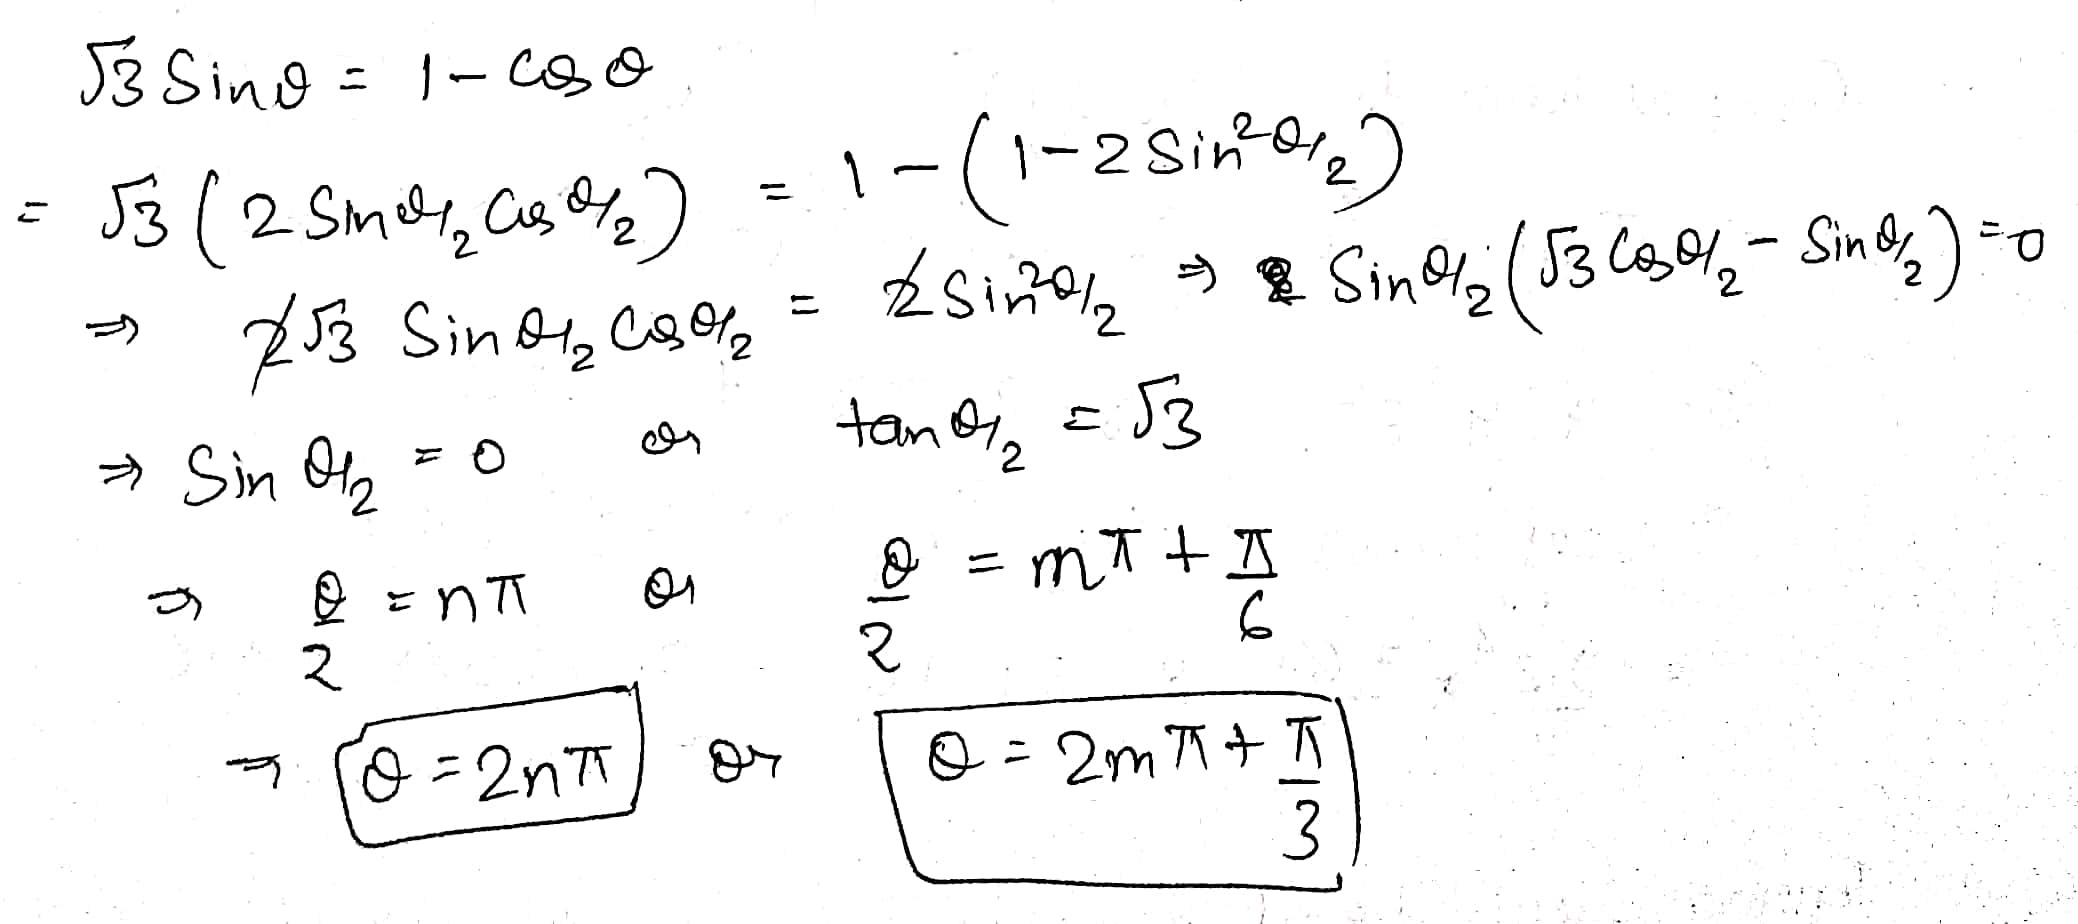 √3 Sinθ = 1 - Cosθ
= √3 ( 2 Sin θ/2 Cos θ/2 ) = 1 - ( 1 - 2 Sin² θ/2 )
⇒ 2√3 Sin θ/2 Cos θ/2 = 2 Sin² θ/2 ⇒ Sin θ/2 ( √3 Cos θ/2 - Sin θ/2 ) = 0
⇒ Sin θ/2 = 0 or tan θ/2 = √3
⇒ θ/2 = nπ or θ/2 = mπ + π/6
⇒ θ = 2nπ or θ = 2mπ + π/3